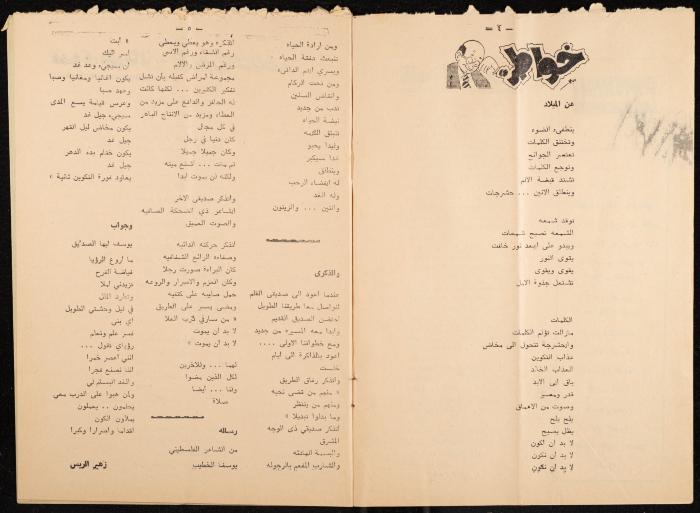 — ٤ —
خواطر
عن الميلاد
ينطفىء الضوء
وتختنق الكلمات
تعتصر الجوانح
وتوجع الكلمات
تشتد قبضة الالم
وينطلق الانين ... حشرجات
توقد شمعه
الشمعه تصبح شمعات
ويبدو على البعد نور خافت
يقوى النور
يقوى ويقوى
تشتعل جذوة الامل
الكلمات
مازالت توأم الكلمات
والحشرجة تتحول الى مخاض
عذاب التكوين
العذاب الخالد
باق الى الابد
قدر ومصير
وصوت من الاعماق
يلح يلح
يظل يصيح
لا بد ان اكون
لا بد ان نكون
لا بد ان نكون
— ٥ —
ومن ارادة الحياه
تنبعث دفقة الحياه
ويسري الدم الدافىء
ومن تحت الركام
وانقاض السنين
تدب من جديد
نبضة الحياه
تنبثق الكلمه
وليدا يحبو
غدا سيكبر
وينطلق
له الفضاء الرحب
وله الغد
والتين ... والزيتون
والذكرى
عندما اعود الى صديقي القلم
لنواصل معا طريقنا الطويل
احتضن الصديق القديم
وابدا معه المسيره من جديد
ومع خطواتنا الاولى ....
اعود بالذاكرة الى ايام
خلت
واتذكر رفاق الطريق
« منهم من قضى نحبه
ومنهم من ينتظر
وما بدلوا تبديلا »
اتذكر صديقي ذي الوجه
المشرق
والبسمة الهادئه
والشارب المفعم بالرجوله
اتذكره وهو يعطي ويعطي
رغم الشقاء ورغم الاسى
ورغم المرض والالام
مجموعة امراض كفيله بأن تشل
تفكير الكثيرين ... لكنها كانت
له الحافز والدافع على مزيد من
العطاء ومزيد من الانتاج الباهر
في كل مجال
كان دنيا في رجل
وكان جميلا جميلا
ثم مات ... اشنع ميته
ولكنه لن يموت ابدا
واتذكر صديقي الاخر
الشاعر ذي الضحكة الصافيه
والصوت العميق
اتذكر حركته الدائبه
وصفاءه الرائع الشفافيه
كان البراءة صورت رجلا
وكان العزم والاصرار والروعه
حمل صليبه على كتفيه
ومضى يسير على الطريق
« من سار في درب العلا
لا بد ان يموت
لا بد ان يموت »
لهما ... وللاخرين
لكل الذين مضوا
ولنا ... ايضا
صلاة
رساله
من الشاعر الفلسطيني
يوسف الخطيب
« أبت
اسر اليك
أن سيجيء وعد غد
يكون اغانيا ومغانيا وصبا
وعهد صبا
وعرس قيامة يسع المدى
سيجيء جيل غد
يكون مخاض ليل القهر
جيل غد
يكون ختام بدء الدهر
جيل غد
يعاود فورة التكوين ثانية »
وجواب
يوسف ايها الصديق
ما اروع الرؤيا
فياضة الفرح
تزيدني املا
وتطارد الملل
في ليل وحشتي الطويل
اي بني
صبر علم وتعلم
رؤياي تقول ...
انني اعصر خمرا
اننا نصنع فجرا
يحلمون .. يعملون
يملأون الكون
اقداما واصرارا وكبرا
زهير الريس